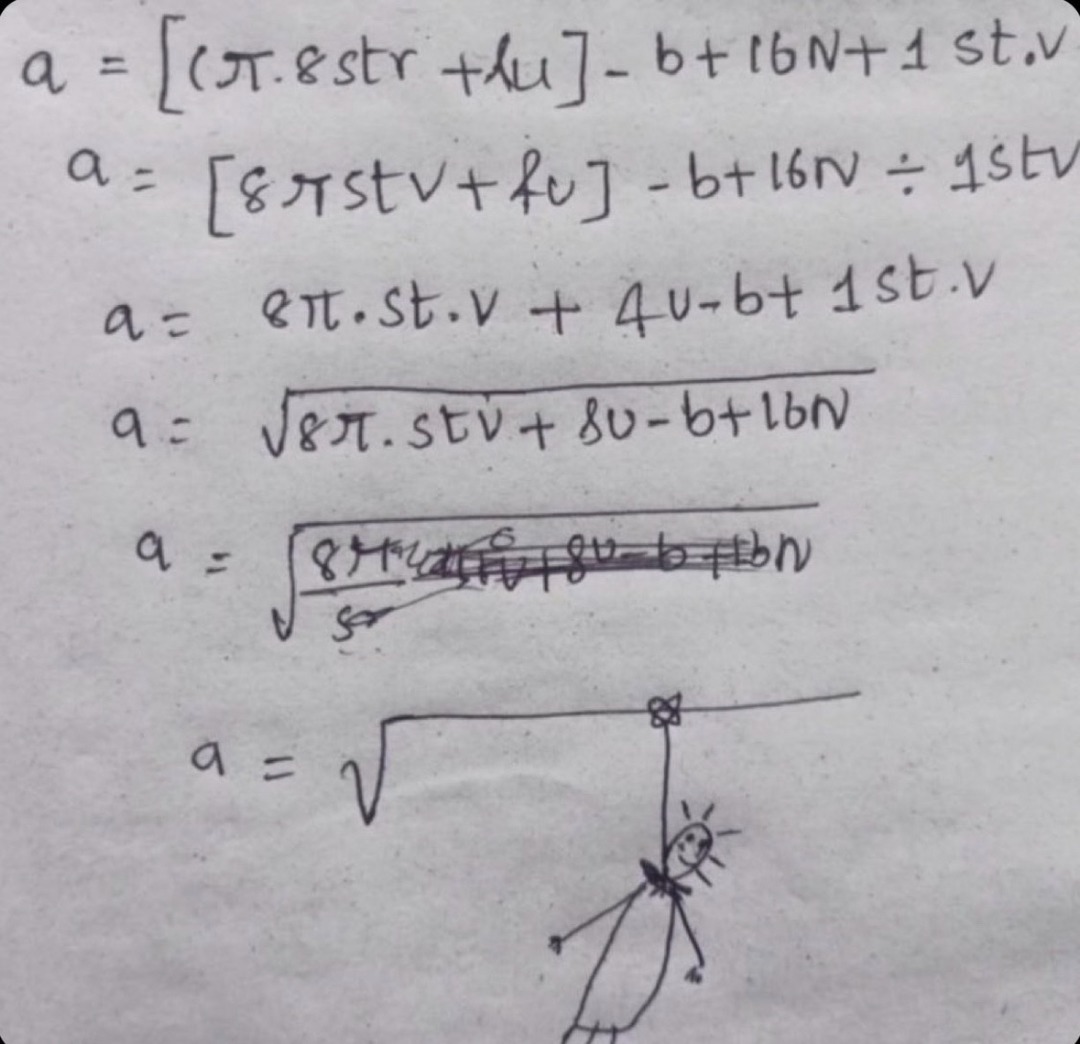 a = [(π.8str + 4u] - b + 16N + 1 st.v
a = [8πstv + 4u] - b + 16N ÷ 1stv
a = 8π.st.v + 4u - b + 1st.v
a = √8π.stv + 8u - b + 16N
a = √8π +8u - b + 16N
a = √